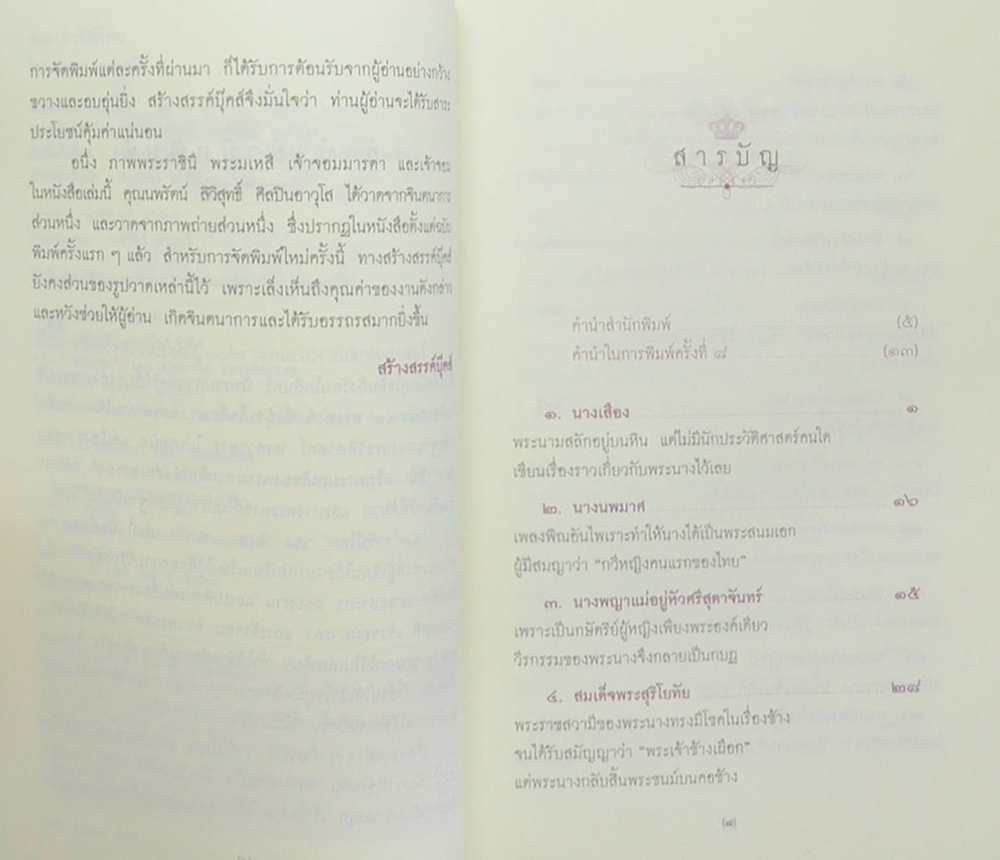 การจัดพิมพ์แต่ละครั้งที่ผ่านมา ก็ได้รับการต้อนรับจากผู้อ่านอย่างกว้าง
ขวางและอบอุ่นยิ่ง สร้างสรรค์บุ๊คส์จึงมั่นใจว่า ท่านผู้อ่านจะได้รับสาระ
ประโยชน์คุ้มค่าแน่นอน
อนึ่ง ภาพพระราชินี พระมเหสี เจ้าจอมมารดา และเจ้าจอม
ในหนังสือเล่มนี้ คุณนพรัตน์ ลิวิสุทธิ์ ศิลปินอาวุโส ได้วาดจากจินตนาการ
ส่วนหนึ่ง และวาดจากภาพถ่ายส่วนหนึ่ง ซึ่งปรากฏในหนังสือตั้งแต่ฉบับ
พิมพ์ครั้งแรก ๆ แล้ว สำหรับการจัดพิมพ์ใหม่ครั้งนี้ ทางสร้างสรรค์บุ๊คส์
ยังคงส่วนของรูปวาดเหล่านี้ไว้ เพราะเล็งเห็นถึงคุณค่าของงานดังกล่าว
และหวังช่วยให้ผู้อ่าน เกิดจินตนาการและได้รับอรรถรสมากยิ่งขึ้น
สร้างสรรค์บุ๊คส์
สารบัญ
คำนำสำนักพิมพ์ (๕)
คำนำในการพิมพ์ครั้งที่ ๘ (๑๓)
๑. นางเสือง ๑
พระนามสลักอยู่บนหิน แต่ไม่มีนักประวัติศาสตร์คนใด
เขียนเรื่องราวเกี่ยวกับพระนางไว้เลย
๒. นางนพมาศ ๑๖
เพลงพิณอันไพเราะทำให้นางได้เป็นพระสนมเอก
ผู้มีสมญาว่า “กวีหญิงคนแรกของไทย”
๓. นางพญาแม่อยู่หัวศรีสุดาจันทร์ ๑๕
เพราะเป็นกษัตริย์ผู้หญิงเพียงพระองค์เดียว
วีรกรรมของพระนางจึงกลายเป็นกบฏ
๔. สมเด็จพระสุริโยทัย ๒๘
พระราชสวามีของพระนางทรงมีโชคในเรื่องช้าง
จนได้รับสมัญญาว่า “พระเจ้าช้างเผือก”
แต่พระนางกลับสิ้นพระชนม์บนคอช้าง
(๗)